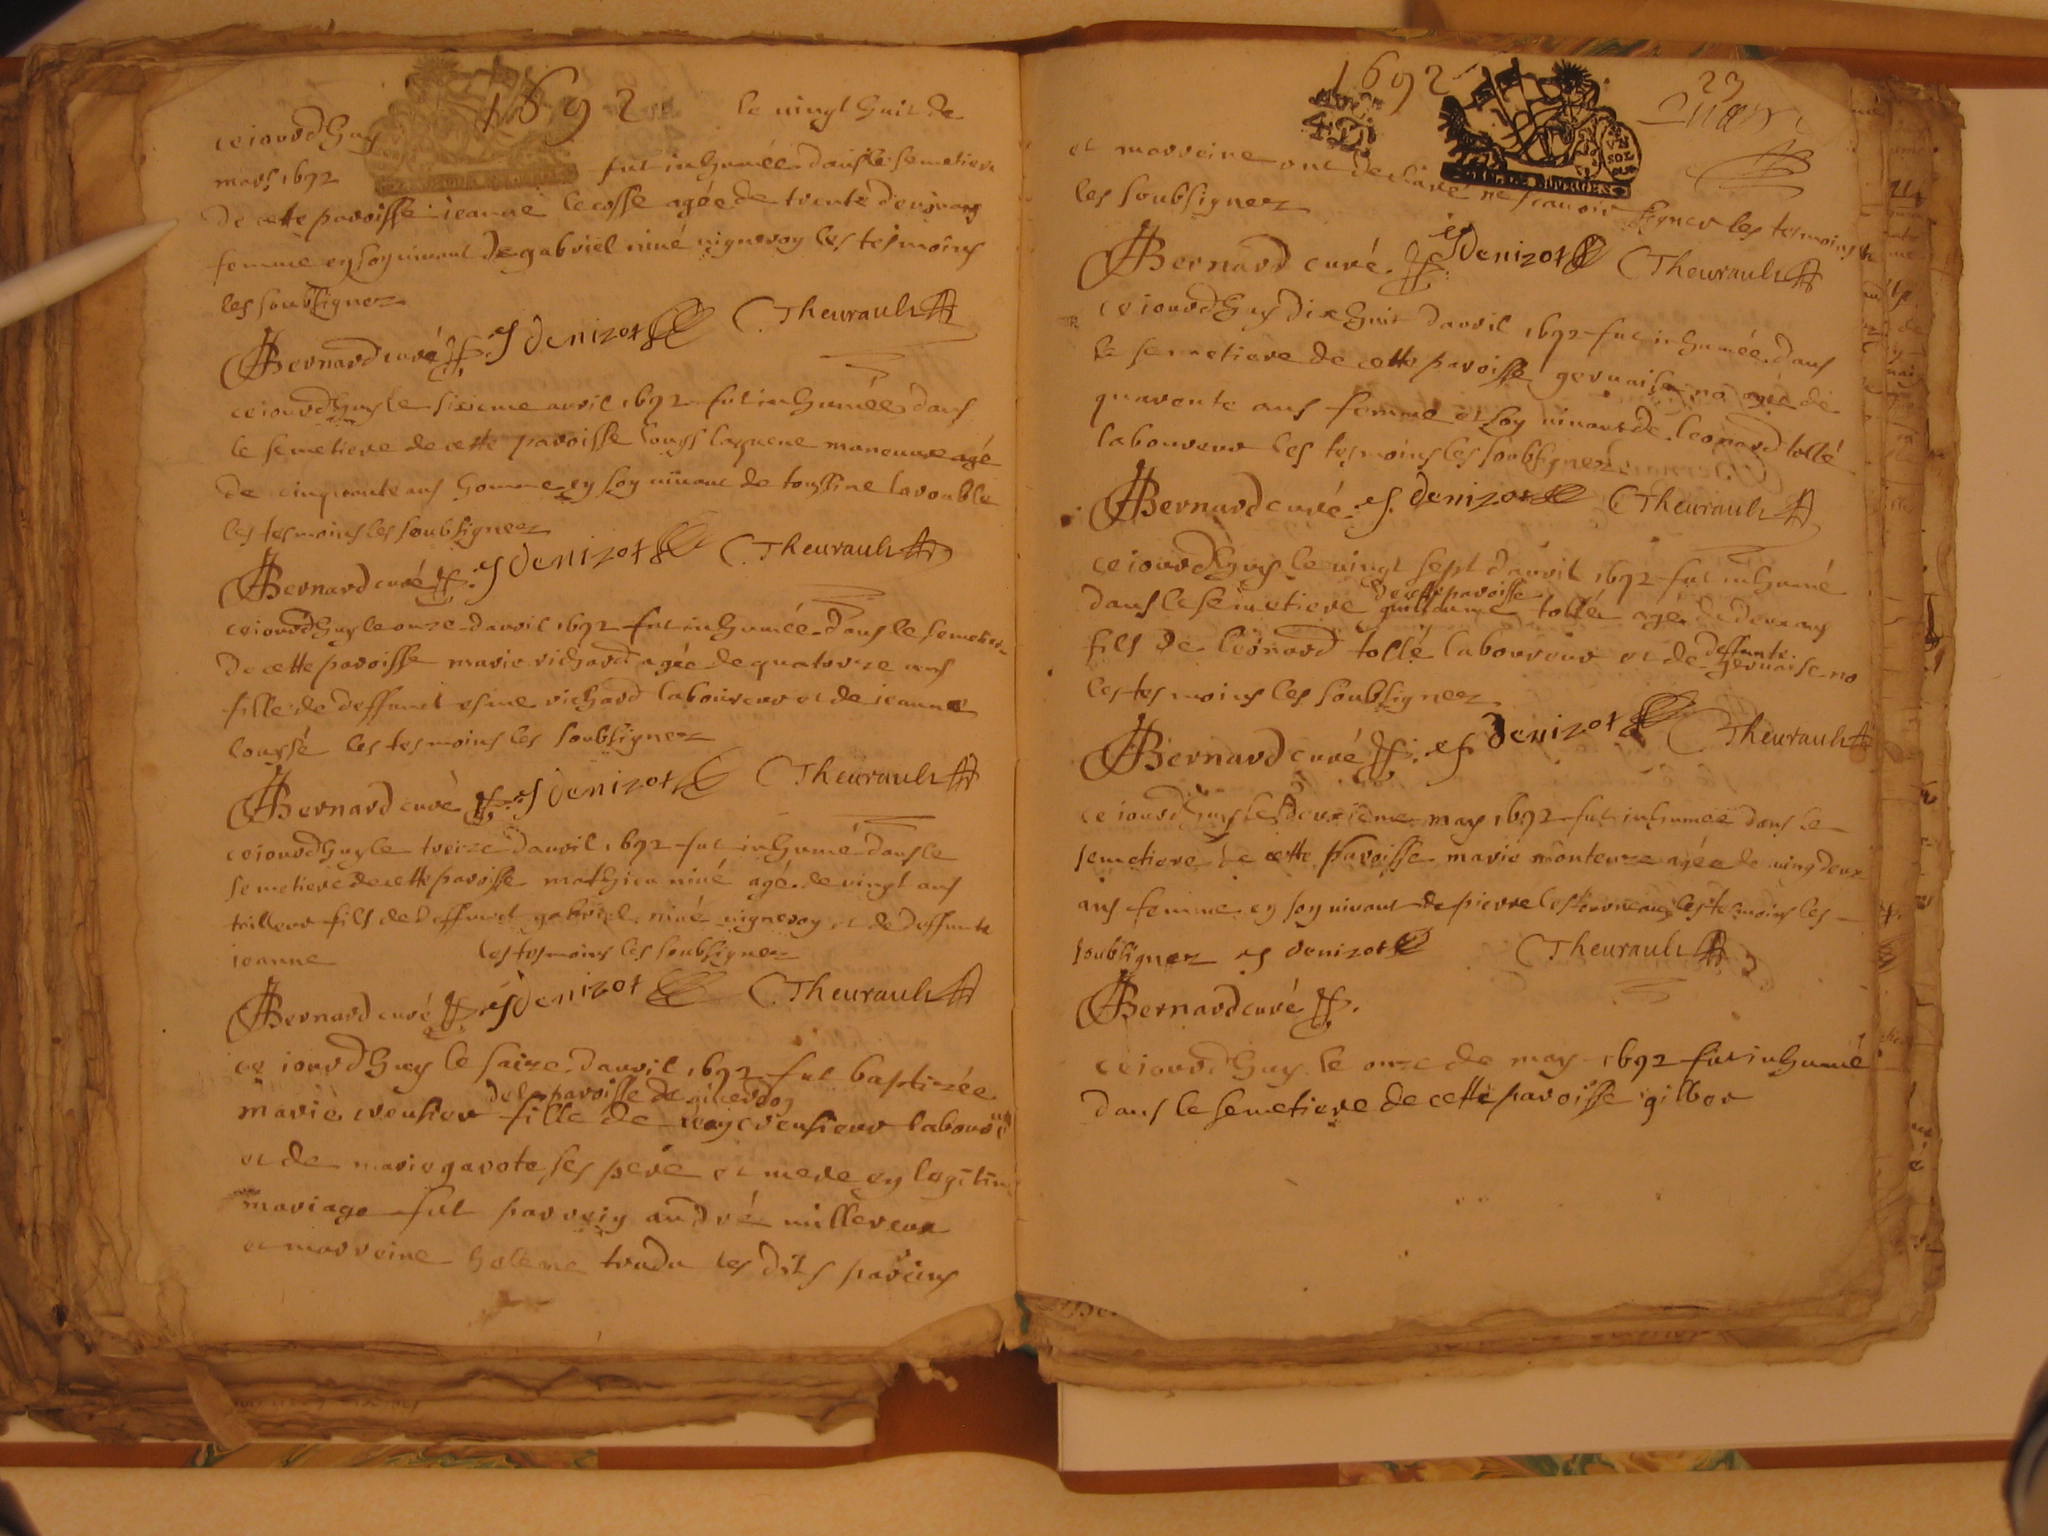 1692
ce iourdhuy le vingt huit de
mars 1692 fut inhumée dans le semetiere
de cette paroisse ieanne lecosse agée de trente deux ans
femme en son vivant de gabriel niué vigneron les tesmoins
les soubsignez
Bernard curé J denizot C Theurault
ce iourdhuy le sixieme avril 1692 fut inhumée dans
le semetiere de cette paroisse louys manouvre agé
de cinquante ans homme en son vivant de toussine lavouble
les tesmoins les soubsignez
Bernard curé J denizot C Theurault
ce iourdhuy le onze davril 1692 fut inhumée dans le semetiere
de cette paroisse marie richard agée de quatorze ans
fille de deffunct esme richard laboureur et de ieanne
les tesmoins les soubsignez
Bernard curé J denizot C Theurault
ce iourdhuy le treize davril 1692 fut inhumé dans le
semetiere de cette paroisse mathieu niué agé de vingt ans
tailleur fils de deffunct gabriel niué vigneron et de deffunte
ieanne les tesmoins les soubsignez
Bernard curé J denizot C Theurault
ce iourdhuy le saize davril 1692 fut baptizée
de la paroisse de
marie creusier fille de laboureur
et de marie garote ses pere et mere en legitime
mariage fut parrein andré millereux
et marreine helene les dits pareins
1692
23
VN
SOL
et marreine ont declaré ne scavoir signer les tesmoins
les soubsignez
Bernard curé J denizot C Theurault
ce iourdhuy dixhuit davril 1692 fut inhumée dans
le semetiere de cette paroisse gervaise no agée de
quarente ans femme en son vivant de leonard tollé
laboureur les tesmoins les soubsignez
Bernard curé J denizot C Theurault
ce iourdhuy le vingt sept davril 1692 fut inhumé
de cette paroisse
dans le semetiere guillaume tollé agé de deux ans
deffunte
fils de leonard tollé laboureur et de gervaise no
les tesmoins les soubsignez
Bernard curé J denizot C Theurault
ce iourdhuy le deuxieme may 1692 fut inhumée dans le
semetiere de cette paroisse marie monteuze agée de vingt deux
ans femme en son vivant de pierre les tesmoins les
soubsignez J denizot C Theurault
Bernard curé
ce iourdhuy le onze de may 1692 fut inhumé
dans le semetiere de cette paroisse gilber